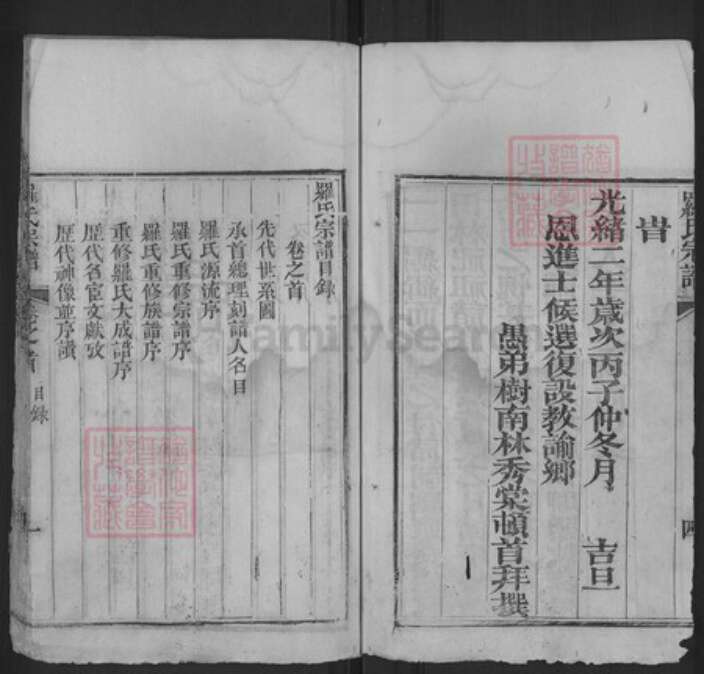 羅氏宗譜
旹
光緒二年歲次丙子仲冬月 吉旦
恩進士候選復設教諭鄉
愚弟樹南林秀棠頓首拜撰
四
羅氏宗譜目錄
卷之首
先代世系圖
承首總理刻譜人名目
羅氏源流序
羅氏重修宗譜序
羅氏重修族譜序
重修羅氏大成譜序
歷代名宦文獻攷
歷代神像並序讚
羅氏宗譜
卷之首
目錄
一
FamilySearch